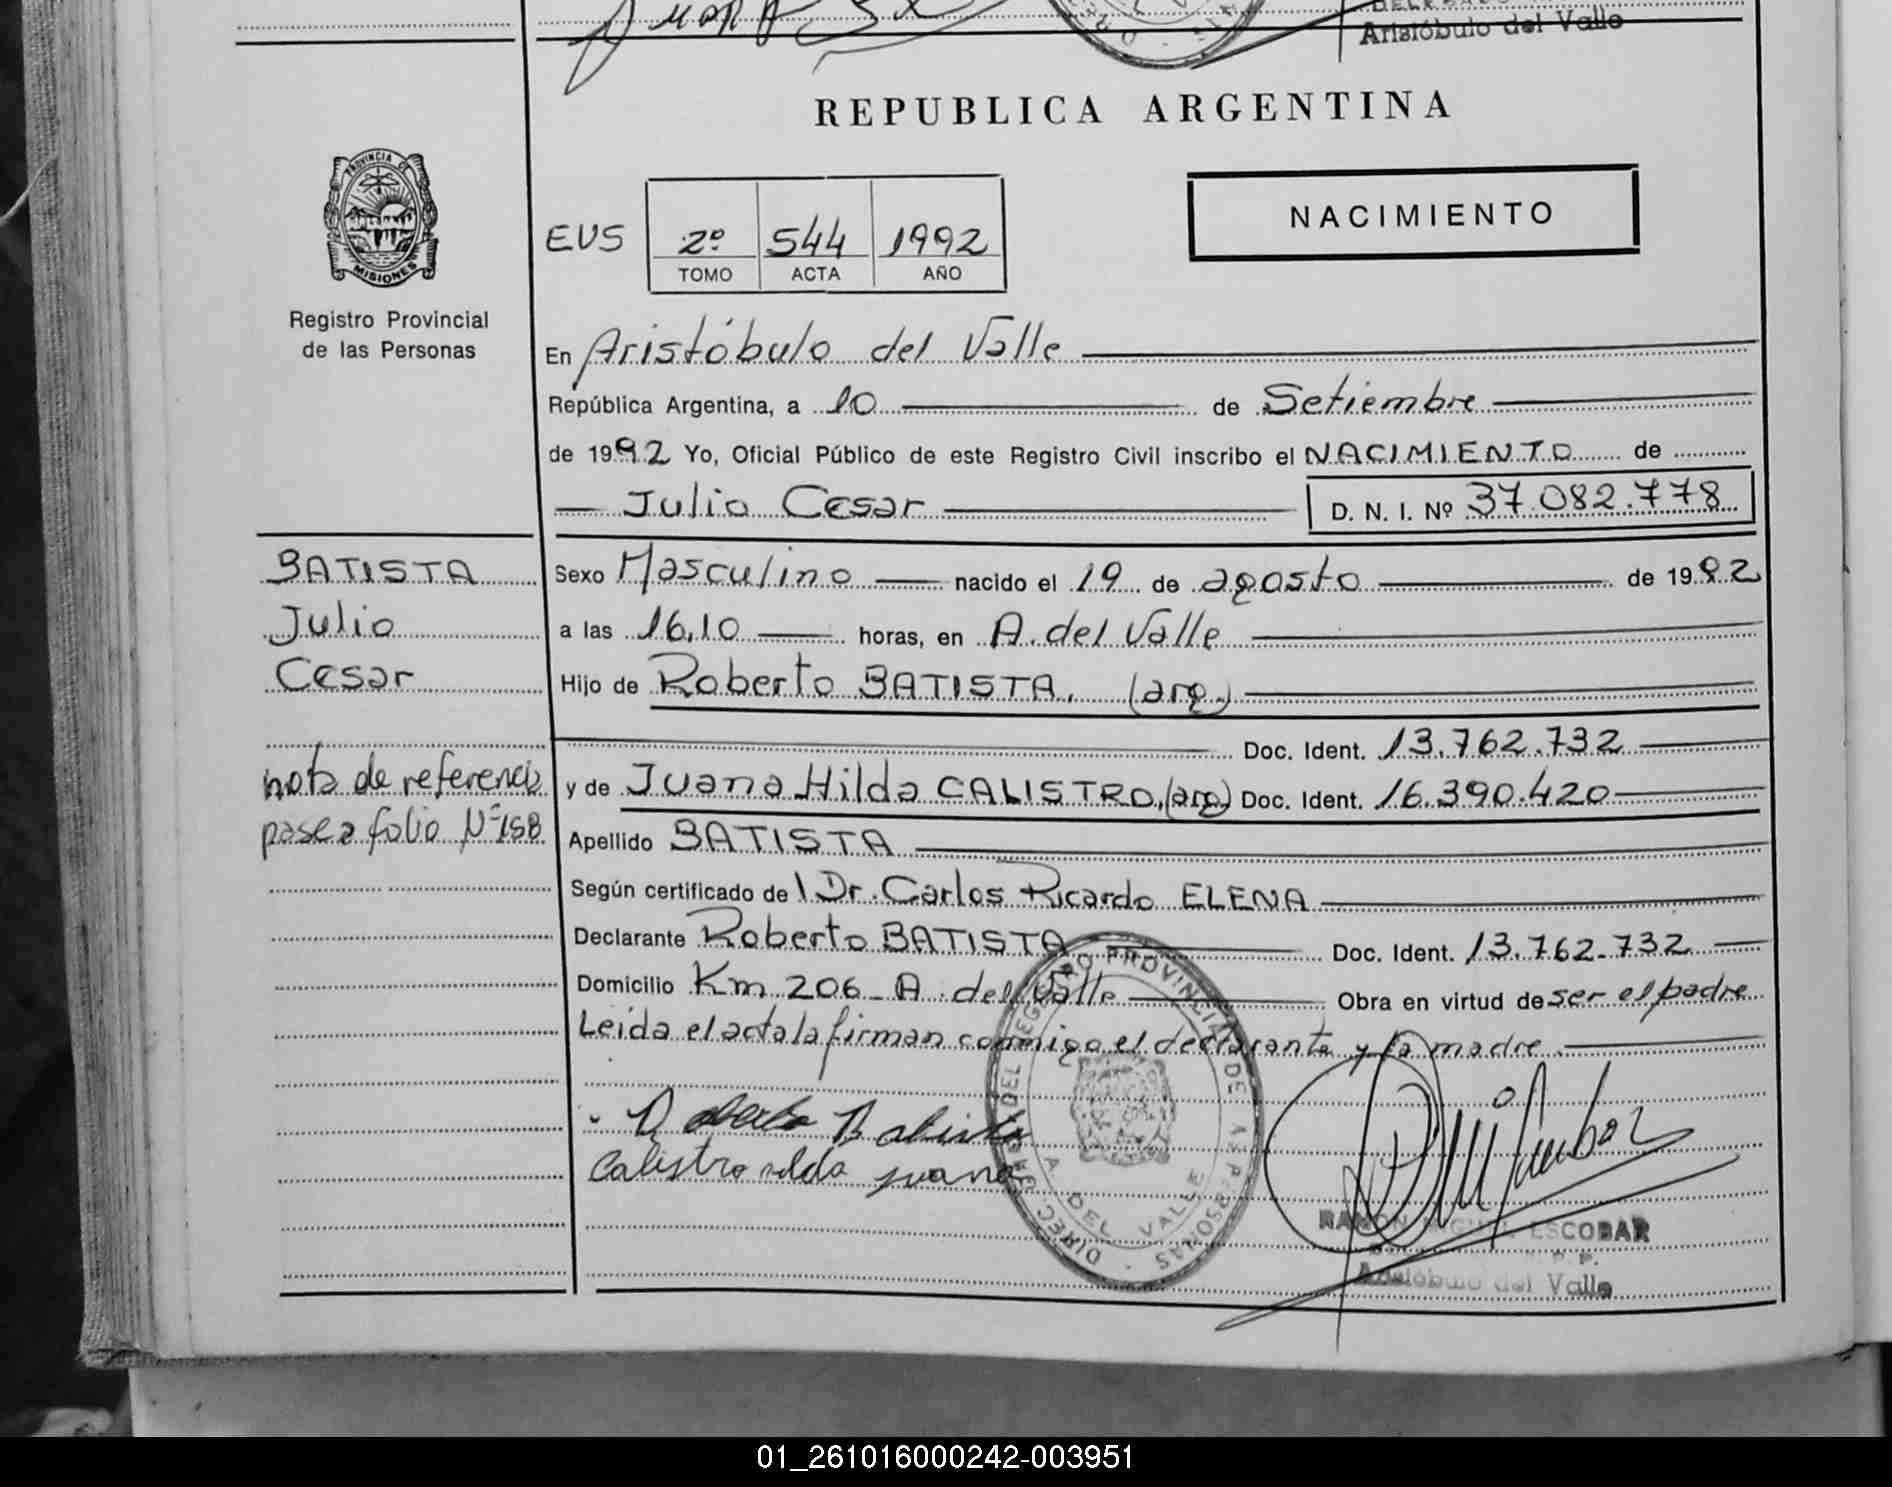 Aristóbulo del Valle
REPUBLICA ARGENTINA
PROVINCIA DE
MISIONES
Registro Provincial
de las Personas
EVS 2º 544 1992
TOMO ACTA AÑO
NACIMIENTO
En Aristóbulo del Valle
República Argentina, a 10 de Setiembre
de 1992 Yo, Oficial Público de este Registro Civil inscribo el NACIMIENTO de
Julio Cesar D. N. I. Nº 37.082.778
BATISTA
Julio
Cesar
nota de referencia
pase a folio Nº 158
Sexo Masculino nacido el 19 de agosto de 1992
a las 16,10 horas, en A. del Valle
Hijo de Roberto BATISTA. (arg.)
Doc. Ident. 13.762.732
y de Juana Hilda CALISTRO, (arg) Doc. Ident. 16.390.420
Apellido BATISTA
Según certificado de l Dr. Carlos Ricardo ELENA
Declarante Roberto BATISTA Doc. Ident. 13.762.732
Domicilio Km 206 - A. del Valle Obra en virtud de ser el padre
Leida el acta la firman conmigo el declarante y la madre.
Roberto Batista
Calistro ilda juana
DIREC. GRAL. DEL REGISTRO PROVINCIAL DE LAS PERSONAS
A. DEL VALLE
RAMON MIGUEL ESCOBAR
Aristóbulo del Valle
01_261016000242-003951